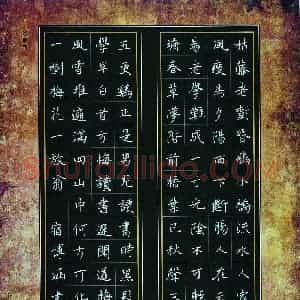 枯藤老樹昏鴉小橋流水人家
風瘦馬夕陽西下斷腸人在天
易老學難成一寸光陰不可輕
塘春草夢階前梧葉已秋聲三
五更鷄正是男兒讀書時黑髮
學早白首方悔讀書遲聞道梅
風雪堆遍滿四山中何方可化
一樹梅花一放翁